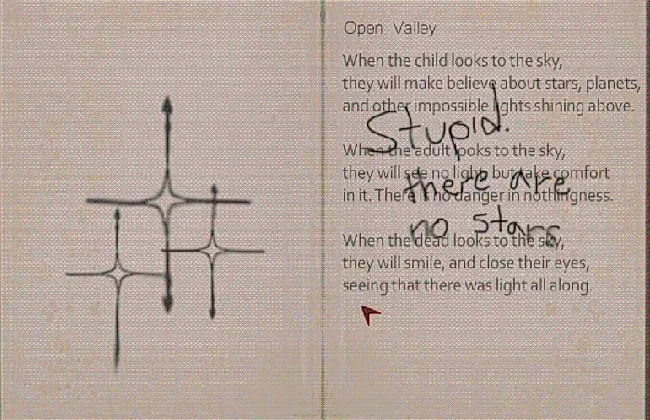 Open Valley
When the child looks to the sky,
they will make believe about stars, planets,
and other impossible lights shining above.
Stupid.
When the adult looks to the sky,
they will see no light but take comfort
there are
in it. There is no danger in nothingness.
no stars
When the dead looks to the sky,
they will smile, and close their eyes,
seeing that there was light all along.